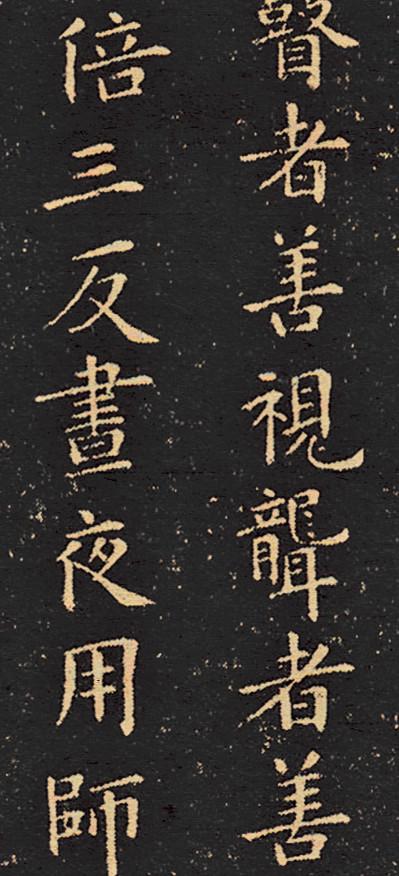 者善視聾者善
倍三反晝夜用師